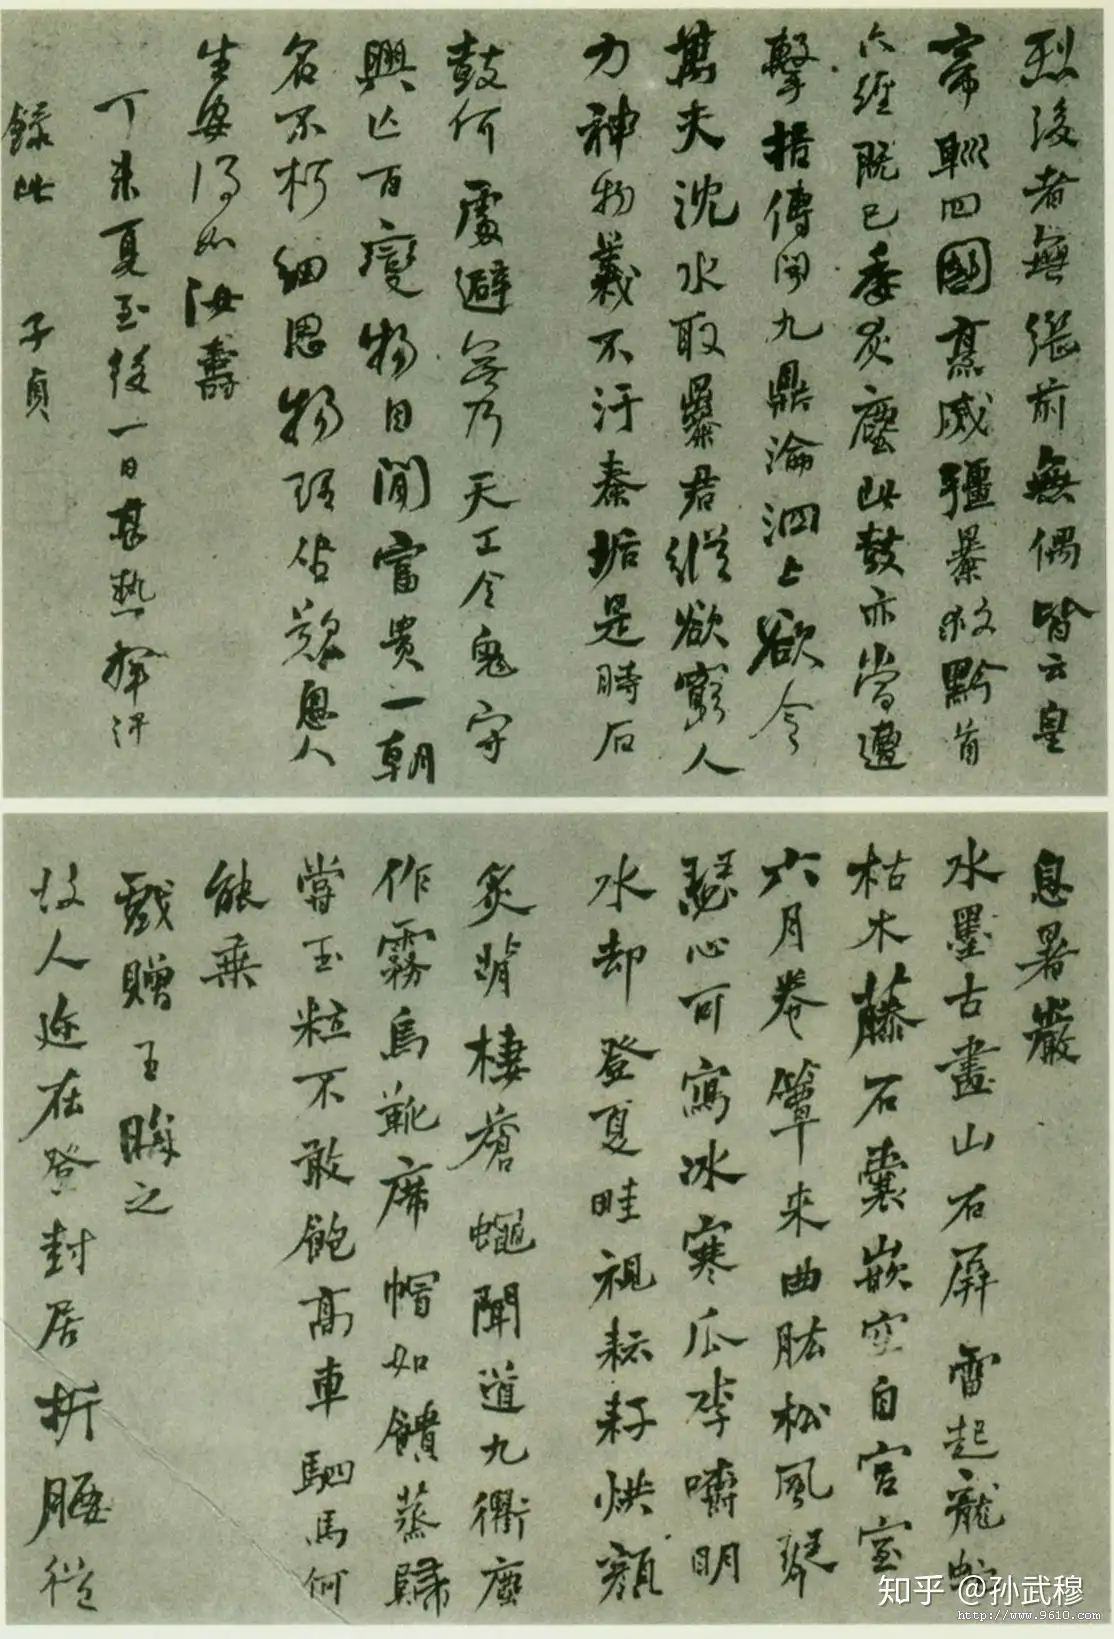 烈後者無繼前無偶皆云皇
帝巡四國烹滅彊暴救黔首
六經既已委灰塵此鼓亦當遭
擊掊傳聞九鼎淪泗上欲令
萬夫沈水取暴君縱欲窮人
力神物義不汙秦垢是時石
鼓何處避無乃天工令鬼守
興亡百變物自閒富貴一朝
名不朽細思物理坐歎息人
生安得如汝壽
丁未夏至後一日甚熱揮汗
錄此 子貞
息暑巖
水墨古畫山石屏雷起龍蛇
枯木藤石囊嵌空自宮室
六月卷簟来曲肱松風琴
瑟心可寫冰寒瓜李嚼明
水却登夏畦視耘耔烘顏
炙背棲蒼蠅聞道九衢塵
作霧烏靴席帽如饋蒸歸
嘗玉粒不敢飽高車駟馬何
能乘
戲贈王晦之
故人迩在登封居折腰從
知乎 @孙武穆
http://www.9610.com